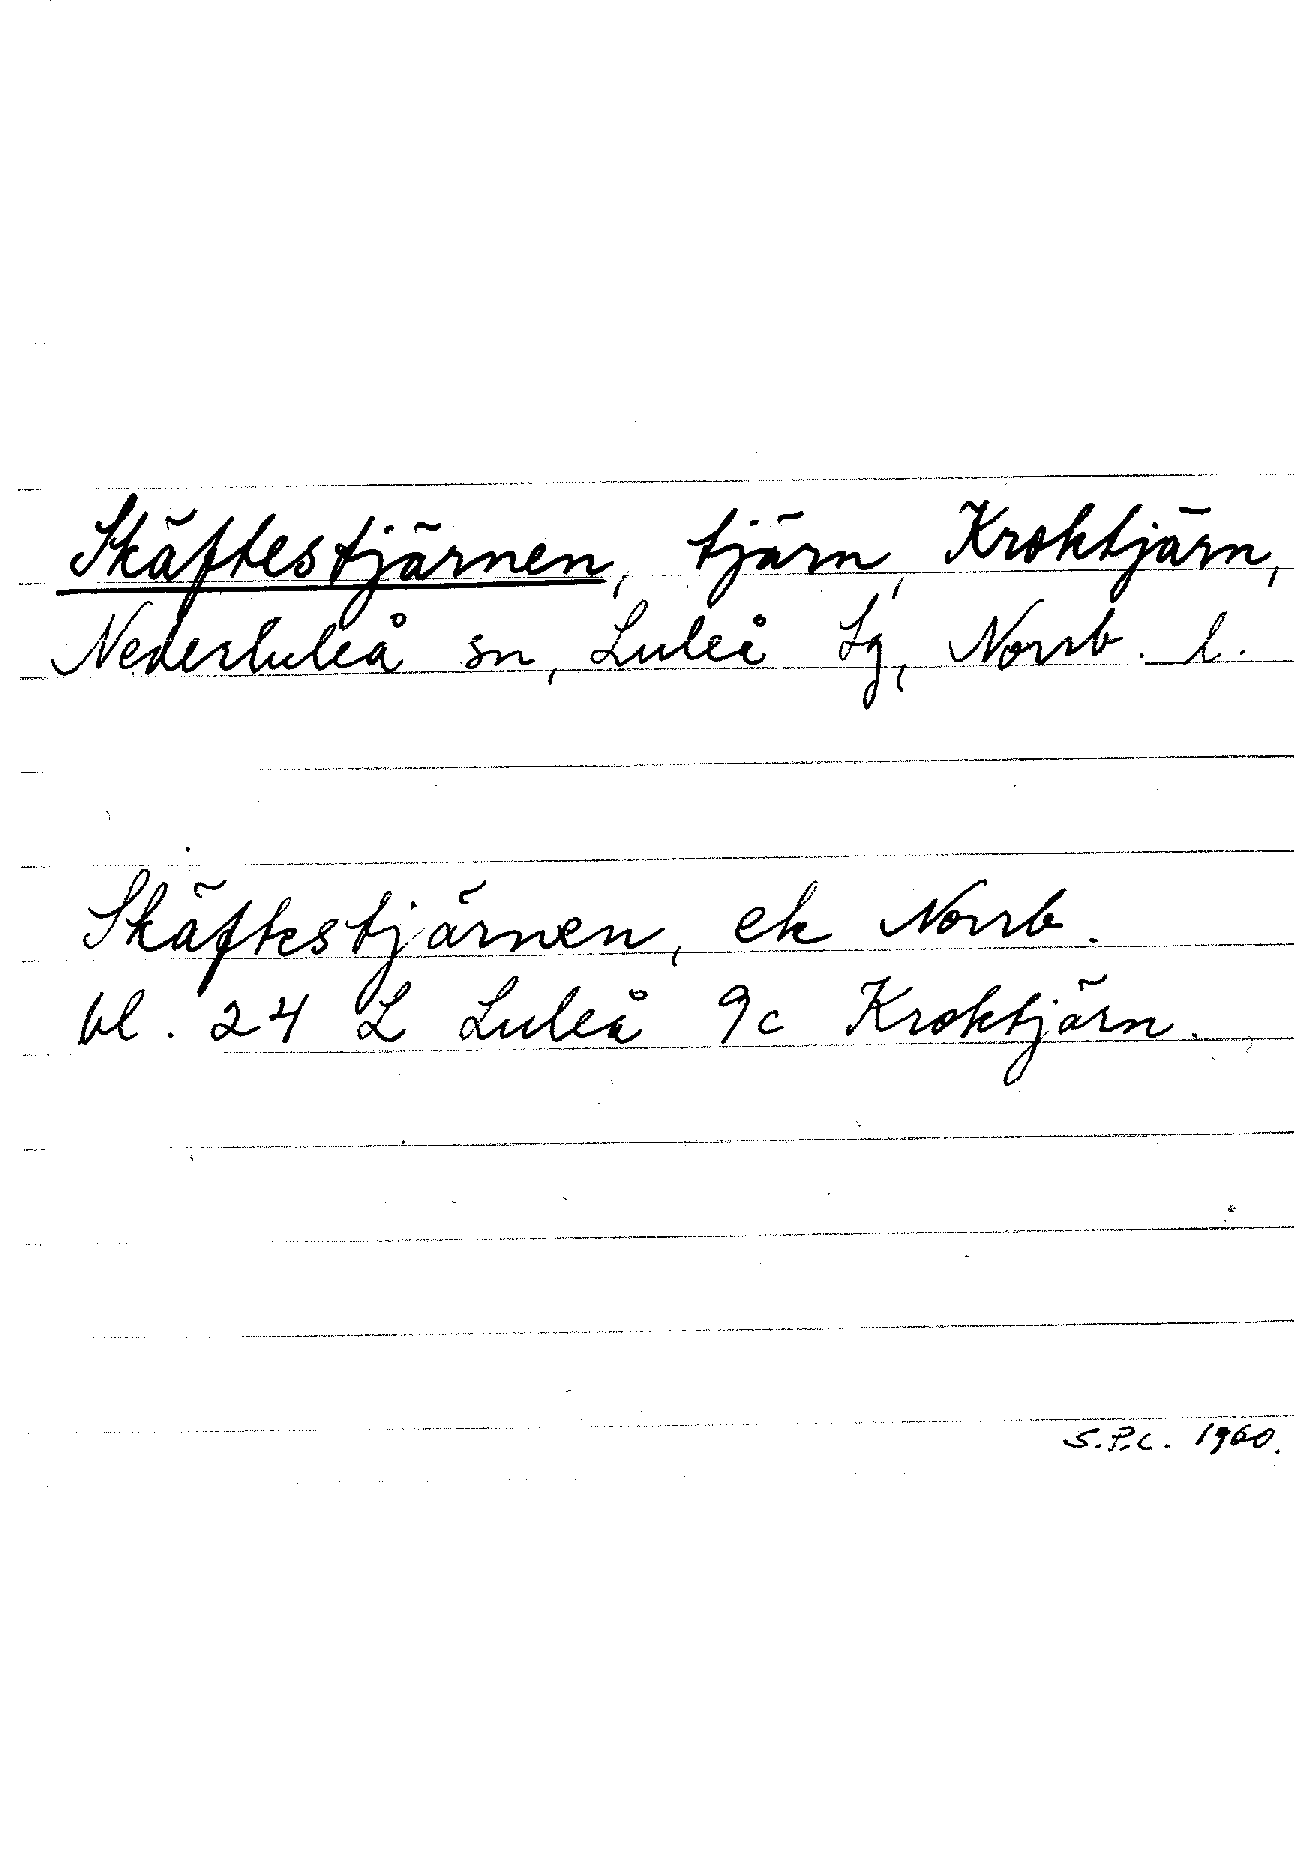 Skäftestjärnen, tjärn, Kroktjärn,
Nederluleå sn, Luleå tg, Norrb. l.
Skäftestjärnen, ek Norrb.
bl. 24 L Luleå 9c Kroktjärn.
S.P.C. 1960.